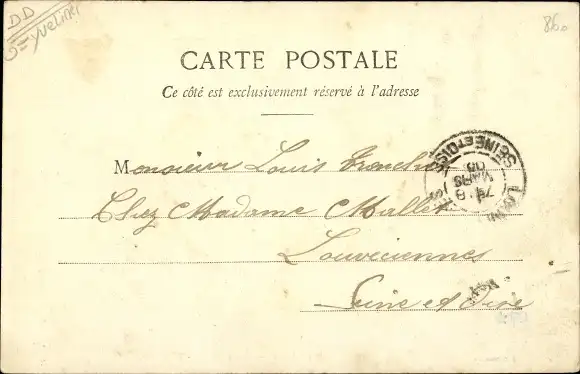 DD
Yvelines
860
CARTE POSTALE
Ce côté est exclusivement réservé à l'adresse
Monsieur Louis
Chez Madame Mallet
Louveciennes
Seine et Oise
SEINE ET OISE
MARS
05